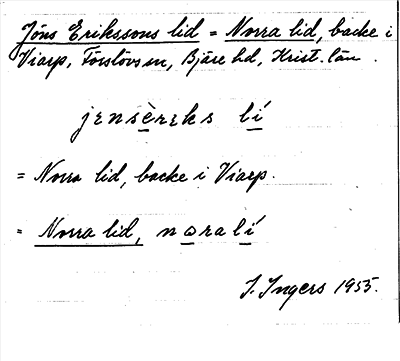 Jöns Erikssons lid = Norra lid, backe i
Viarp, Förslövs sn, Bjäre hd, Krist. län.
jɛnsèrɛks lí
= Norra lid, backe i Viarp.
= Norra lid, nɷralí
I. Ingers 1955.